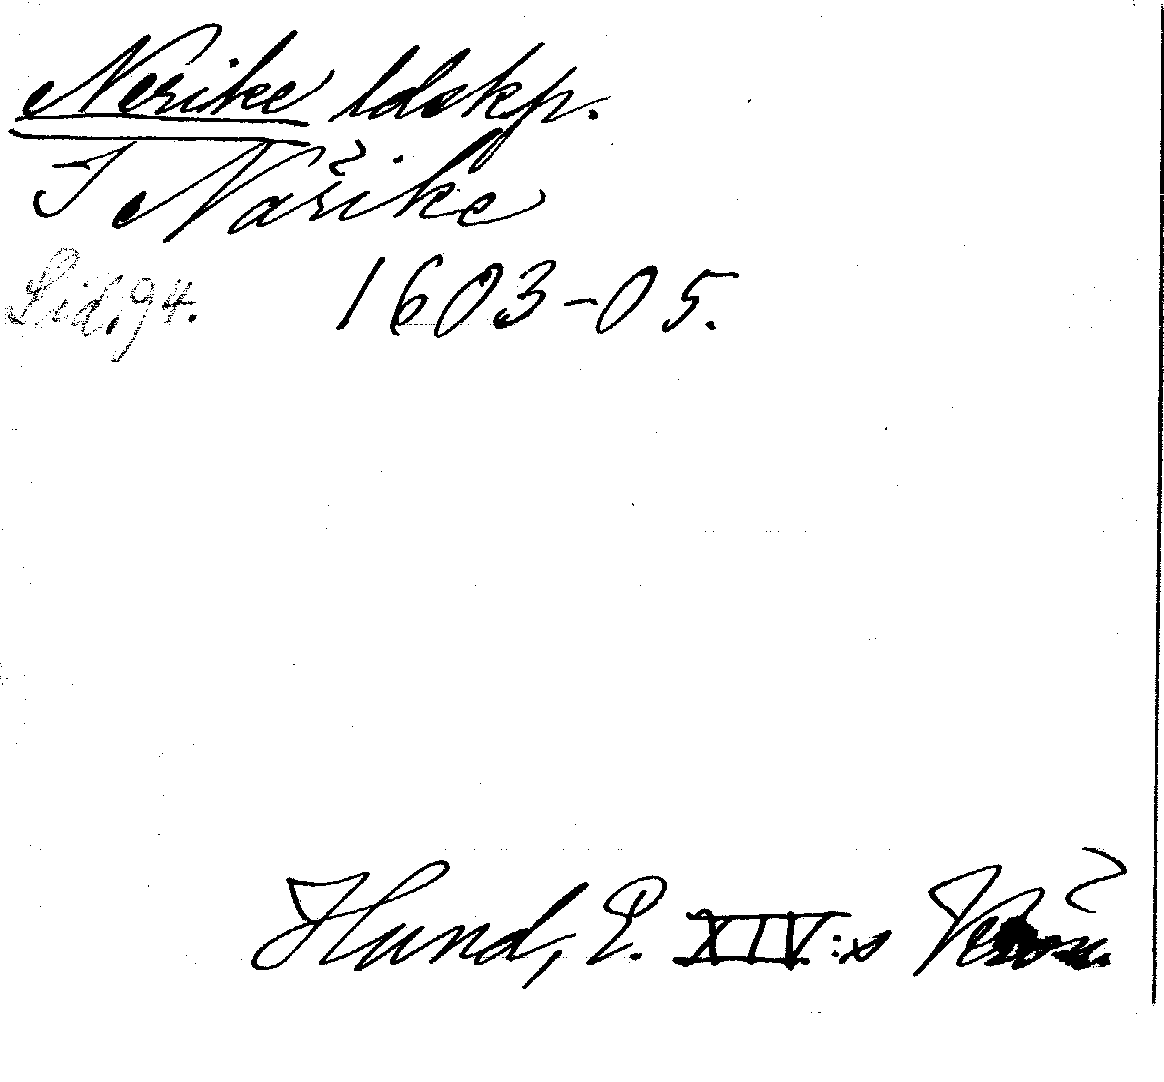 Nerike ldskp.
I Närike
Sid. 94. 1603-05.
Hund, E. XIV:s Krön.